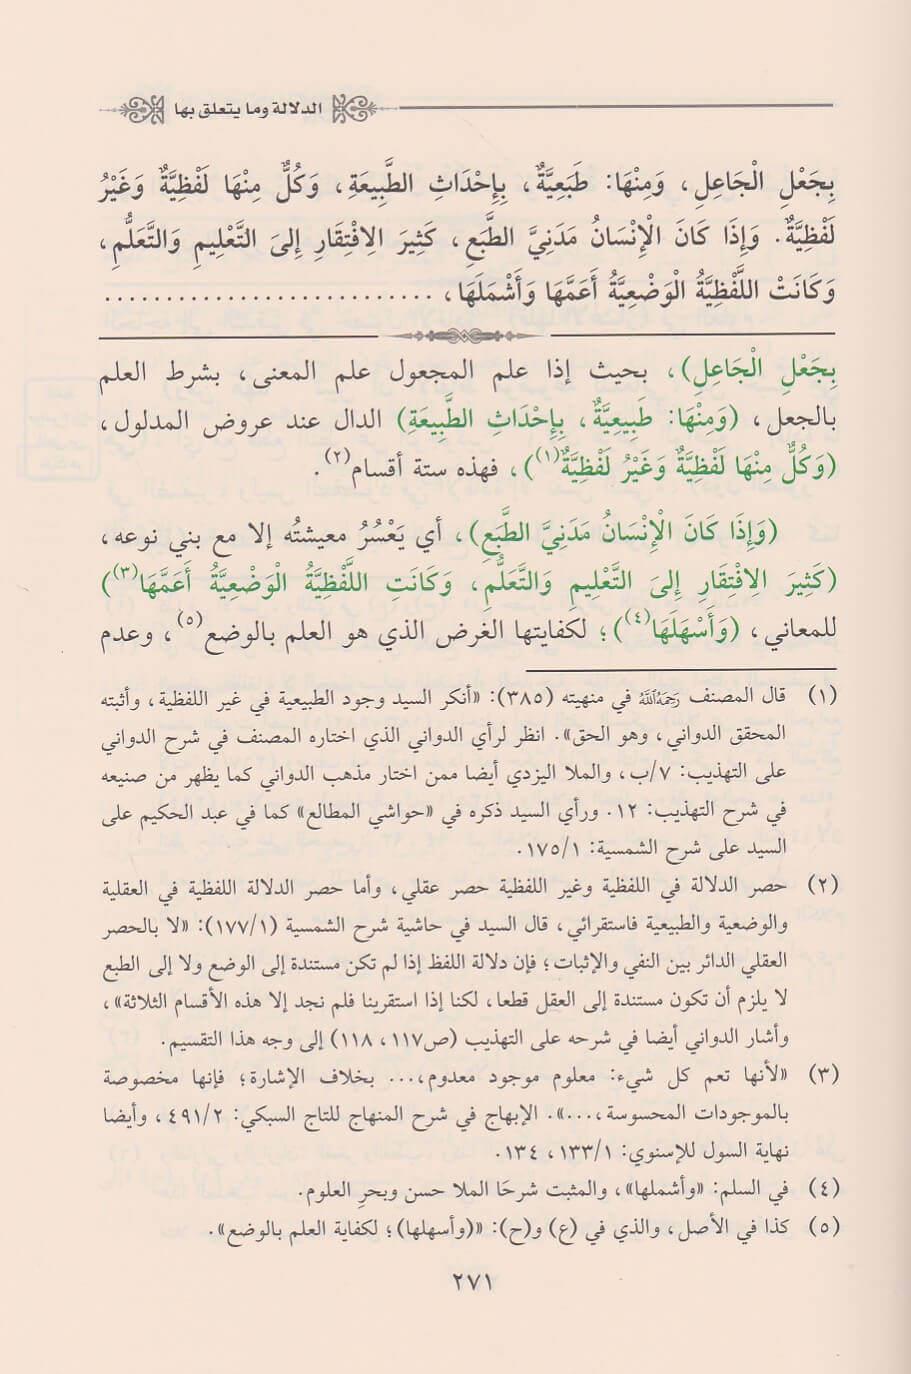 الدلالة وما يتعلق بها
بِجَعْلِ الْجَاعِلِ، وَمِنْهَا: طَبَعِيَّةٌ، بِإِحْدَاثِ الطَّبِيعَةِ، وَكُلٌّ مِنْهَا لَفْظِيَّةٌ وَغَيْرُ
لَفْظِيَّةٌ. وَإِذَا كَانَ الْإِنْسَانُ مَدَنِيَّ الطَّبَعِ، كَثِيرَ الِافْتِقَارِ إِلىَ التَّعْلِيمِ وَالتَّعَلُّمِ،
وَكَانَتْ اللَّفْظِيَّةُ الْوَضْعِيَّةُ أَعَمَّهَا وَأَشْمَلَهَا، ...........................
بِجَعْلِ الْجَاعِلِ)، بحيث إذا علم المجعول علم المعنى، بشرط العلم
بالجعل، (وَمِنْهَا: طَبِيعِيَّةٌ، بِإِحْدَاثِ الطَّبِيعَةِ) الدال عند عروض المدلول،
(وَكُلٌّ مِنْهَا لَفْظِيَّةٌ وَغَيْرُ لَفْظِيَّةٌ(١))، فهذه ستة أقسام(٢).
(وَإِذَا كَانَ الْإِنْسَانُ مَدَنِيَّ الطَّبَعِ)، أي يَعْسُرُ معيشتُه إلا مع بني نوعه،
(كَثِيرَ الِافْتِقَارِ إِلىَ التَّعْلِيمِ وَالتَّعَلُّمِ، وَكَانَتِ اللَّفْظِيَّةُ الْوَضْعِيَّةُ أَعَمَّهَا(٣))
للمعاني، (وَأَسْهَلَهَا(٤))؛ لكفايتها الغرض الذي هو العلم بالوضع(٥)، وعدم
(١) قال المصنف رَحِمَهُ ٱللَّهُ في منهيته (٣٨٥): «أنكر السيد وجود الطبيعية في غير اللفظية، وأثبته
المحقق الدواني، وهو الحق». انظر لرأي الدواني الذي اختاره المصنف في شرح الدواني
على التهذيب: ٧/ب، والملا اليزدي أيضا ممن اختار مذهب الدواني كما يظهر من صنيعه
في شرح التهذيب: ١٢. ورأي السيد ذكره في «حواشي المطالع» كما في عبد الحكيم على
السيد على شرح الشمسية: ١٧٥/١.
(٢) حصر الدلالة في اللفظية وغير اللفظية حصر عقلي، وأما حصر الدلالة اللفظية في العقلية
والوضعية والطبيعية فاستقرائي، قال السيد في حاشية شرح الشمسية (١٧٧/١): «لا بالحصر
العقلي الدائر بين النفي والإثبات؛ فإن دلالة اللفظ إذا لم تكن مستندة إلى الوضع ولا إلى الطبع
لا يلزم أن تكون مستندة إلى العقل قطعا، لكنا إذا استقرينا فلم نجد إلا هذه الأقسام الثلاثة»،
وأشار الدواني أيضا في شرحه على التهذيب (ص١١٧، ١١٨) إلى وجه هذا التقسيم.
(٣) «لأنها تعم كل شيء: معلوم موجود معدوم،... بخلاف الإشارة؛ فإنها مخصوصة
بالموجودات المحسوسة،...». الإبهاج في شرح المنهاج للتاج السبكي: ٤٩١/٢، وأيضا
نهاية السول للإسنوي: ١٣٣/١، ١٣٤.
(٤) في السلم: «وأشملها»، والمثبت شرحَا الملا حسن وبحرِ العلوم.
(٥) كذا في الأصل، والذي في (ع) و(ح): «(وأسهلها)؛ لكفاية العلم بالوضع».
٢٧١